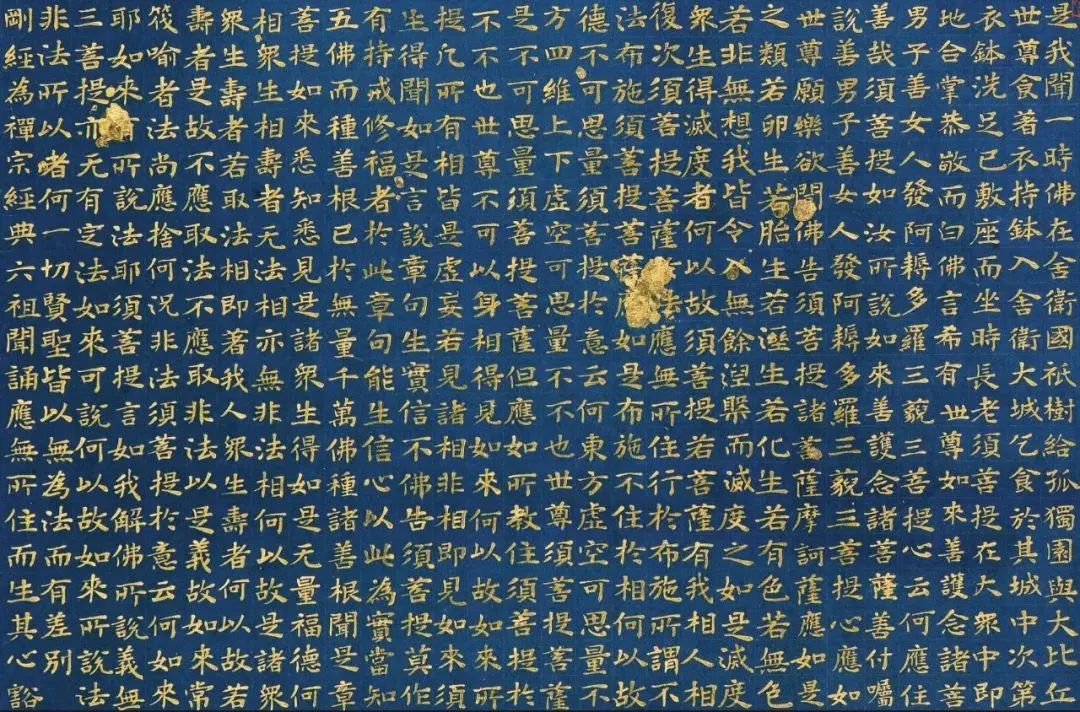 是我聞一時佛在舍衛國祇樹給孤獨園與大比丘
世尊食著衣持鉢入舍衛大城乞食於其城中次第
衣鉢洗足已敷座而坐時長老須菩提在大眾中即
地合掌恭敬而白佛言希有世尊如來善護念諸善
男子善女人發阿耨多羅三藐三菩提心云何應住
善哉須菩提如汝所說如來善護念諸菩薩善付囑
說善男子善女人發阿耨多羅三藐三菩提心應如
世尊願樂欲聞佛告須菩提諸菩薩摩訶薩應如是
之類若卵生若胎生若濕生若化生若有色若無色
若非無想我皆令入無餘涅槃而滅度之如是滅度
眾生得滅度者何以故須菩提若菩薩有我相人相
復次須菩提菩薩法應無所住行於布施所謂不
法布施須菩提菩薩應如是布施不住於相何以故
德不可思量須菩提於意云何東方虛空可思量不
方四維上下虛空可思量不不也世尊須菩提菩薩
是不可思量須菩提菩薩但應如所教住須菩提於
不不也世尊不可以身相得見如來何以故如來所
提凡所有相皆是虛妄若見諸相非相即見如來須
生得聞如是言說章句生實信不佛告須菩提莫作
有持戒修福者於此章句能生信心以此為實當知
五佛而種善根已於無量千萬佛種諸善根聞是章
菩提如來悉知悉見是諸眾生得如是无量福德何
相眾生相壽者无法相亦無非法相何以故是諸眾
眾生壽者若取法相即著我人眾生壽者何以故若
壽者是故不應取法不應取非法以是義故如來常
筏喻者法尚應捨何況非法須菩提於意云何如來
耶如來所說法耶須菩提言如我解佛所說義無
三菩提亦无有定法如來可說何以故如來所說法
非法所以者何一切賢聖皆以無為法而有差別
剛經為禪宗經典六祖聞誦應無所住而生其心豁